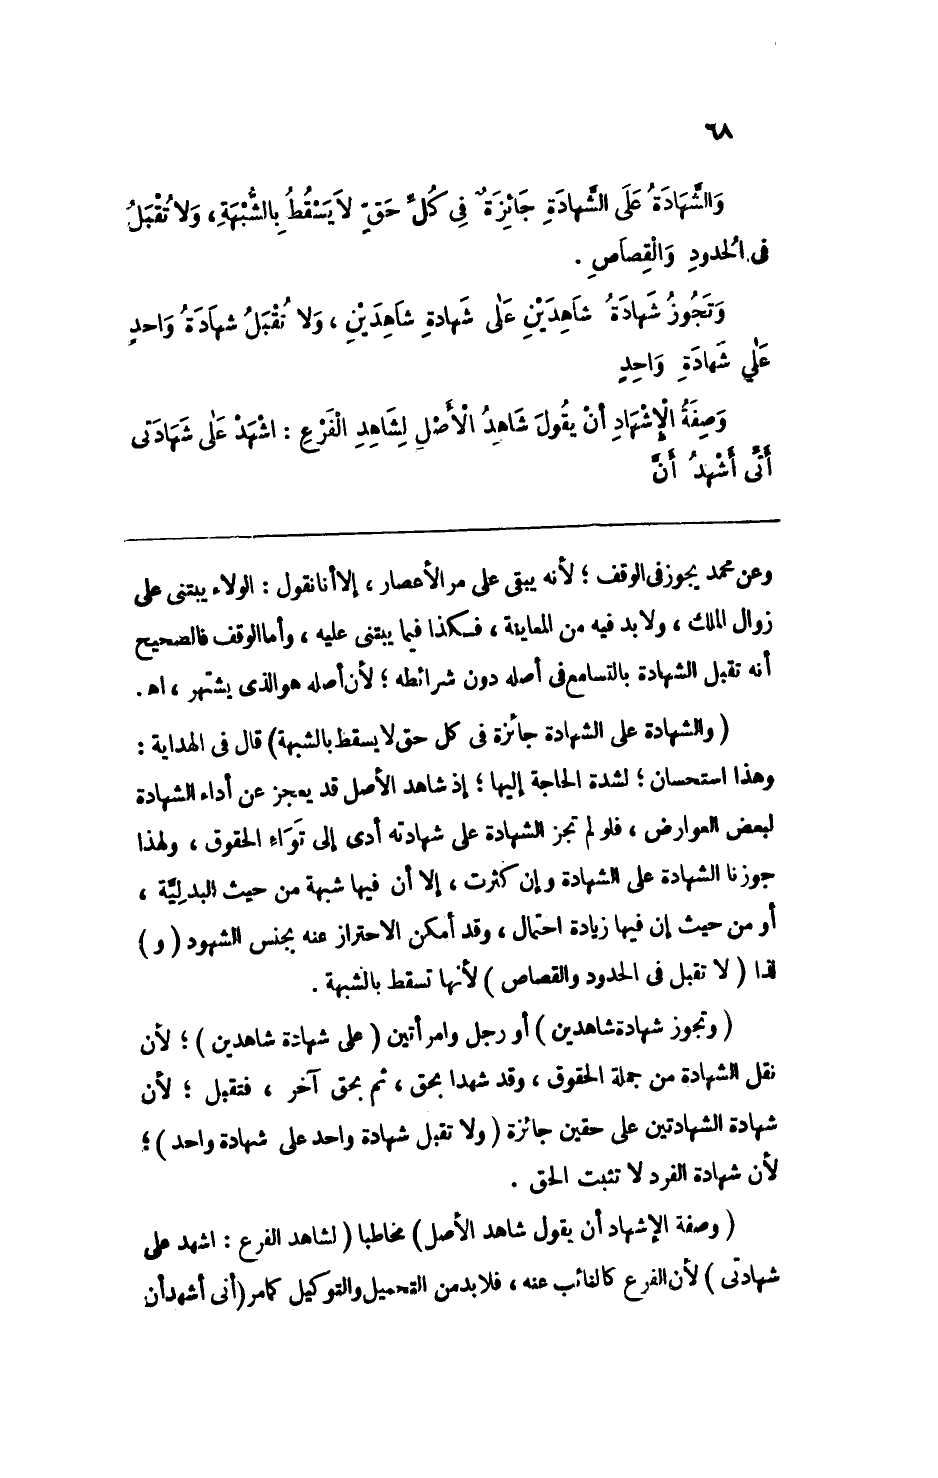 ٦٨
وَالشَّهَادَةُ عَلَى الشَّهادَةِ جَائِزَةٌ فِى كُلِّ حَقٍّ لاَ يَسْقُطُ بِالشُّبْهَةِ، وَلا تُقْبَلُ
فى الْحدودِ وَالْقِصاصِ .
وَتَجُوزُ شَهادَةُ شاَهِدَيْنِ عَلٰى شَهادةِ شاَهِدَيْنِ ، وَلا تُقْبَلُ شهاَدَةُ وَاحدٍ
عَلٰي شَهادَةِ وَاحِدٍ
وَصِفَةُ الْإِشْهَادِ أَنْ يقُولَ شَاهِدُ الْأَصْلِ لِشَاهِدِ الْفَرْعِ : اشْهَدْ عَلٰى شَهَادَتى
أَنِّى أَشْهدُ أَنَّ
وعن محمد يجوز فى الوقف ؛ لأنه يبقى على مر الأعصار ، إلا أنا نقول : الولاء يبتنى على
زوال الملك ، ولابد فيه من المعاينة ، فـكذا فيما يبتنى عليه ، وأما الوقف فالصحيح
أنه تقبل الشهادة بالتسامع فى أصله دون شرائطه ؛ لأن أصله هو الذى يشتهر ، اهـ .
( والشهادة على الشهادة جائزة فى كل حق لا يسقط بالشبهة ) قال فى الهداية :
وهذا استحسان ؛ لشدة الحاجة إليها ؛ إذ شاهد الأصل قد يعجز عن أداء الشهادة
لبعض العوارض ، فلو لم تجز الشهادة على شهادته أدى إلى تَوَاء الحقوق ، ولهذا
جوزنا الشهادة على الشهادة وإن كثرت ، إلا أن فيها شبهة من حيث البدلِيَّة ،
أو من حيث إن فيها زيادة احتمال ، وقد أمكن الاحتراز عنه بجنس الشهود ( و )
لذا ( لا تقبل فى الحدود والقصاص ) لأنها تسقط بالشبهة .
( وتجوز شهادة شاهدين ) أو رجل وامرأتين ( على شهادة شاهدين ) ؛ لأن
نقل الشهادة من جملة الحقوق ، وقد شهدا بحق ، ثم بحق آخر ، فتقبل ؛ لأن
شهادة الشهادتين على حقين جائزة ( ولا تقبل شهادة واحد على شهادة واحد ) ؛
لأن شهادة الفرد لا تثبت الحق .
( وصفة الإشهاد أن يقول شاهد الأصل ) مخاطبا ( لشاهد الفرع : اشهد على
شهادتى ) لأن الفرع كالنائب عنه ، فلابد من التحميل والتوكيل كما مر ( أنى أشهد أن